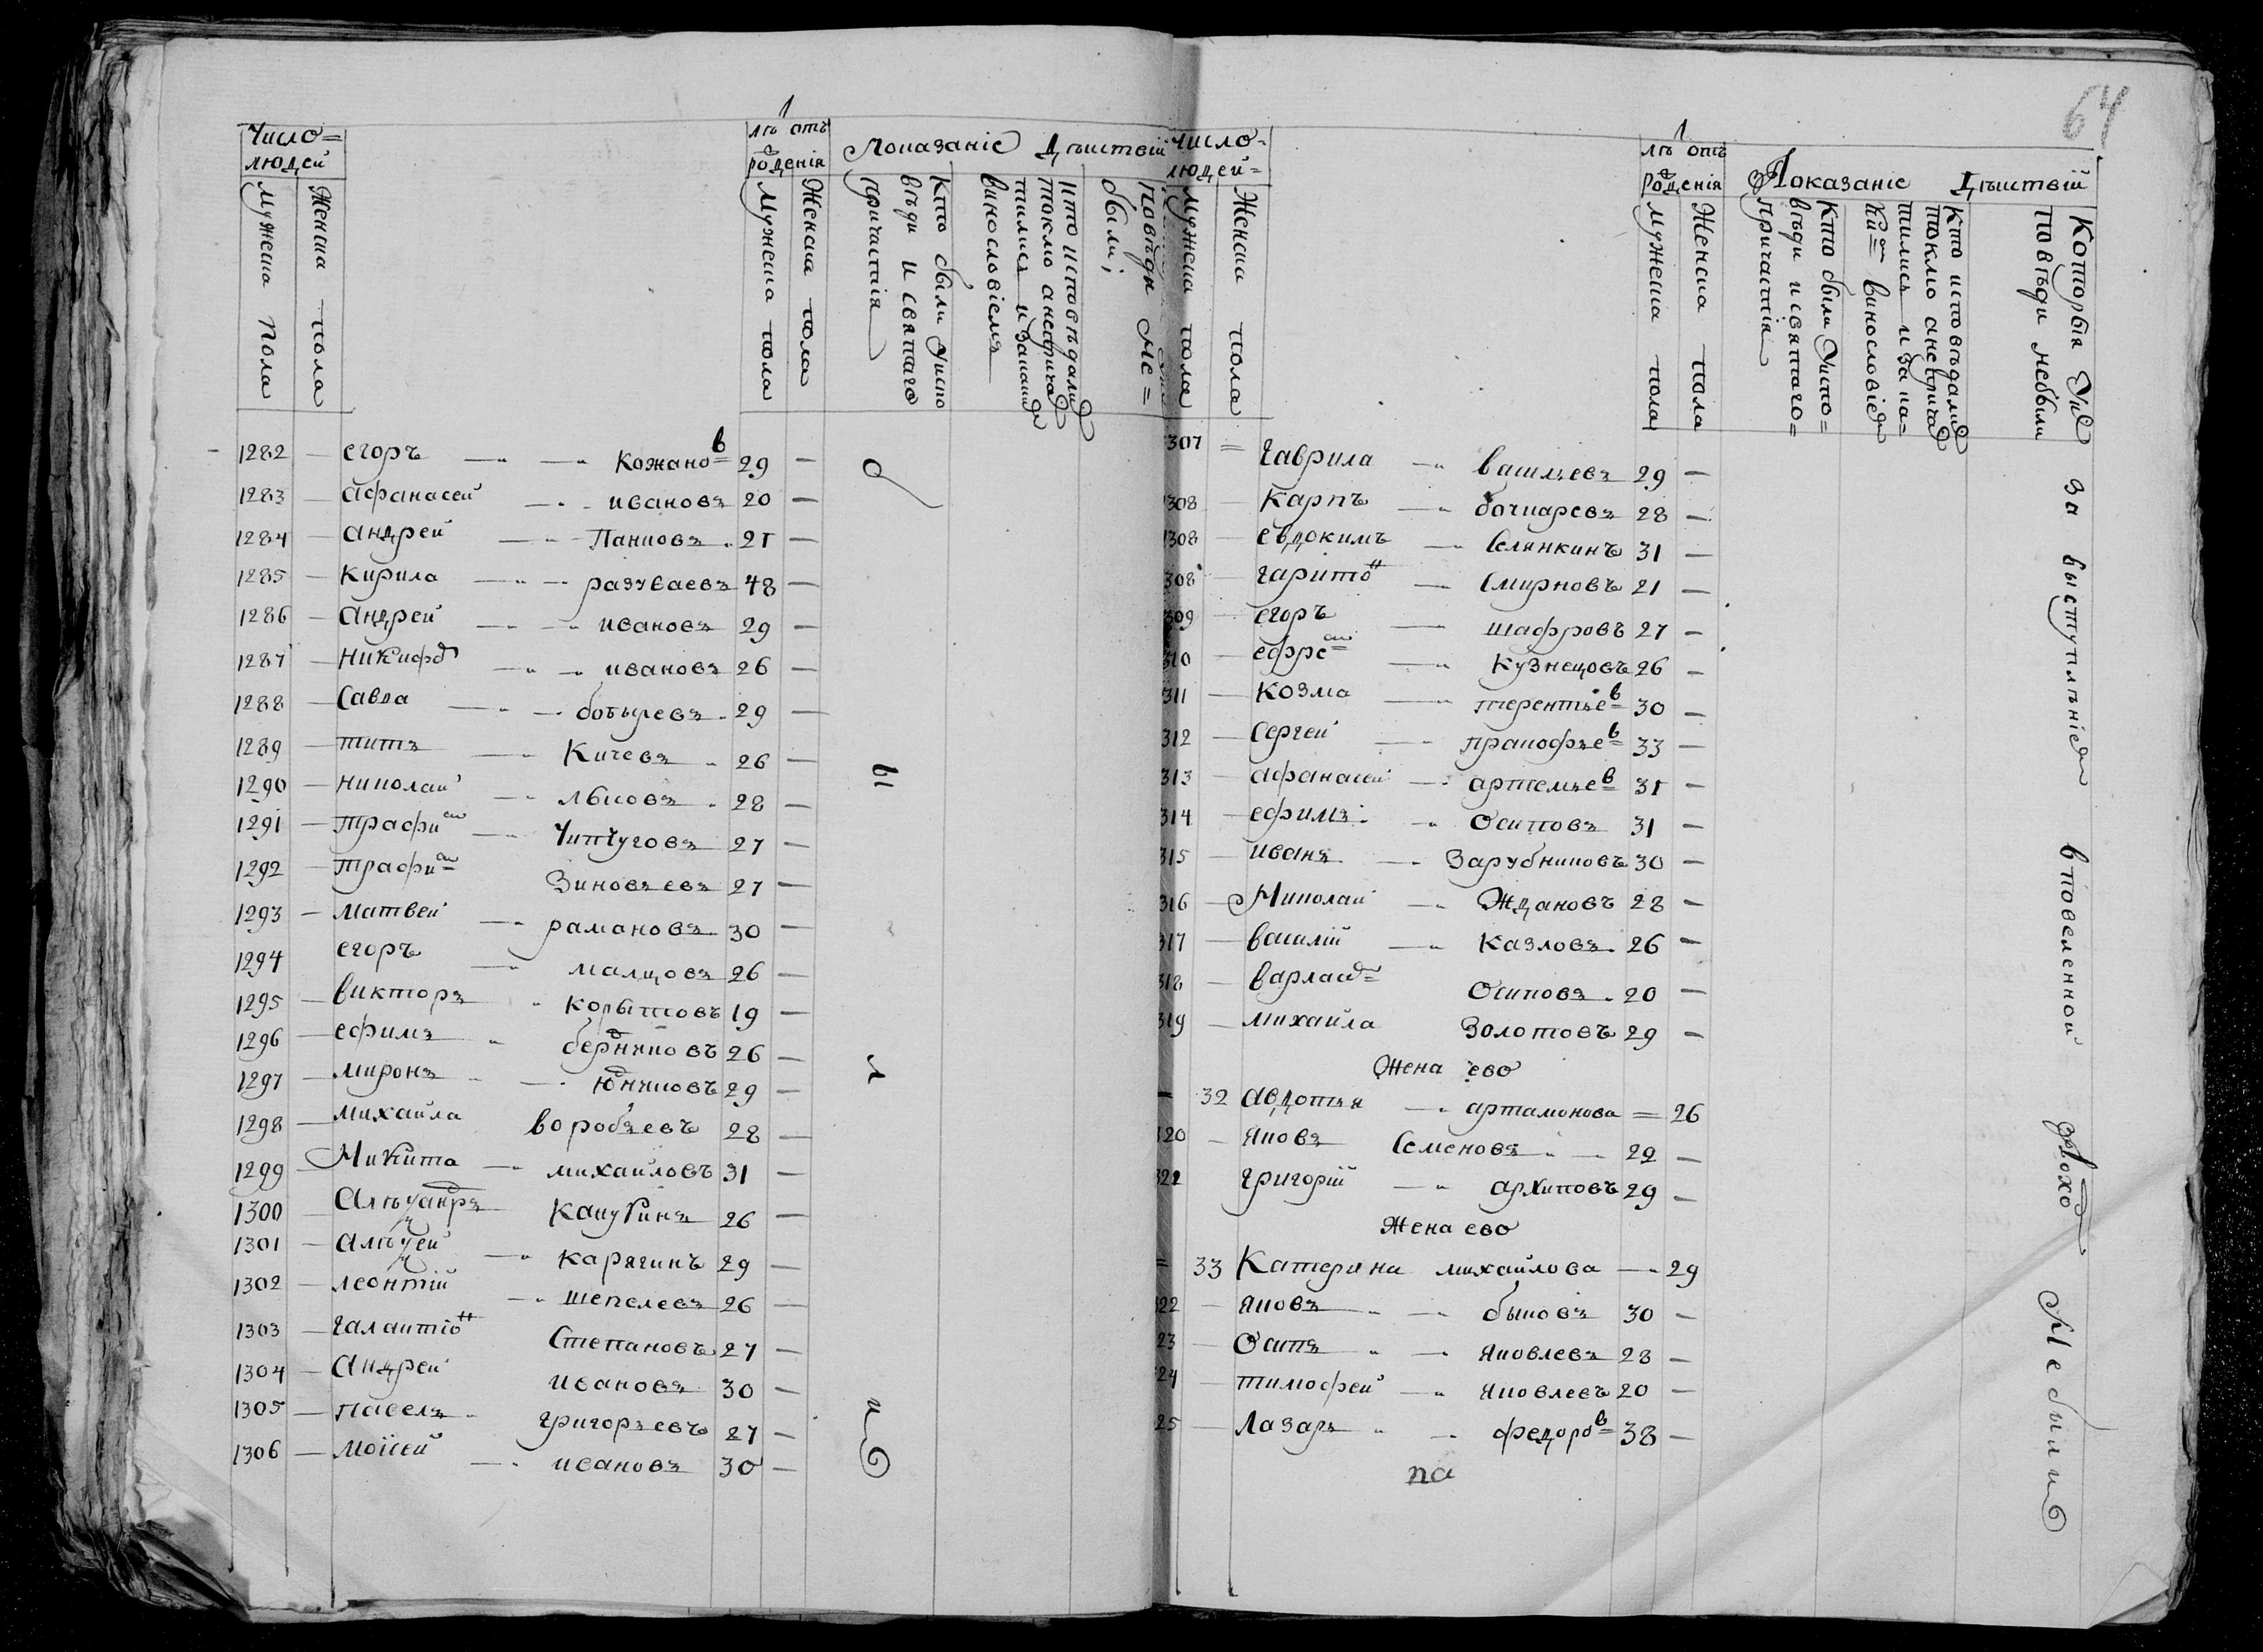 64
Число=
людей
Мужеска пола
Женска пола
лѣ отъ
роденія
Мужеска пола
Женска пола
Показаніе Дѣиствій
Кто были уиспо
вѣди и святаго
причастія
Кто исповѣдали
токмо анепричас
тились и закаки
винословіемъ
повѣди не=
были;
1282 — егоръ — Кожановъ 29 —
1283 — афанасей — ивановъ 20 —
1284 — андрей — Панковъ 21 —
1285 — Кирила — разуваевъ 48 —
1286 — андрей — ивановъ 29 —
1287 — Никифо — ивановъ 26 —
1288 — Савва — 29 —
1289 — титъ — Кичевъ 26 —
1290 — николаи — львовъ 28 —
1291 — трофи — Чипчуговъ 27 —
1292 — трофи Зиновьевъ 27 —
1293 — матвей — рамановъ 30 —
1294 егоръ — малцовъ 26 —
1295 — викторъ Корытовъ 19 —
1296 — ефимъ 26 —
1297 — миронъ — 29 —
1298 — михайла воробьевъ 28 —
1299 Микита — михайловъ 31 —
1300 алеѯандръ 26 —
1301 — алеѯей — карягинъ 29 —
1302 — леонтій — шепелевъ 26 —
1303 — галактіонъ Степановъ 27 —
1304 — андрей ивановъ 30 —
1305 — павелъ григорьевъ 27 —
1306 — моисей — ивановъ 30 —
были
число=
людей=
Мужеска пола
Женска пола
лѣ отъ
роденія
Мужеска пола
Женска пола
Показаніе Дѣиствій
Кто были уиспо=
вѣди и святаго=
причастія
Кто исповѣдали
токмо анепричас
тились и за ка=
ки винословіе
Которыя уис
повѣди небыли
307 = гаврила — васильевъ 29 —
308 — карпъ — бочкаревъ 28 —
308 — евдокимъ — Селянкинъ 31 —
308 — гарито — Смирновъ 21 —
309 — егоръ — шафровъ 27 —
310 — ефре — Кузнецовъ 26 —
311 — козма — терентьевъ 30 —
312 — Сергей — пракофьевъ 33 —
313 — афанасей — артемьевъ 31 —
314 — ефимъ Осиповъ 31 —
315 — иванъ — Зарубниковъ 30 —
316 — Николай — Ждановъ 28 —
317 — василій — Казловъ 26 —
318 — варлаа Осиповъ 20 —
319 — михайла Золотовъ 29 —
Жена ево
— 32 авдотья — артамонова = 26
320 — яковъ Семеновъ — 22 —
322 григорій — архиповъ 29 —
Жена ево
= 33 Катерина михайлова — 29
322 — яковъ — быковъ 30 —
23 — Осипъ — яковлевъ 28 —
24 — тимофей — яковлевъ 20 —
25 — Лазарь — федоровъ 38 —
па
за выступлѣніе в повеленной
Небыли